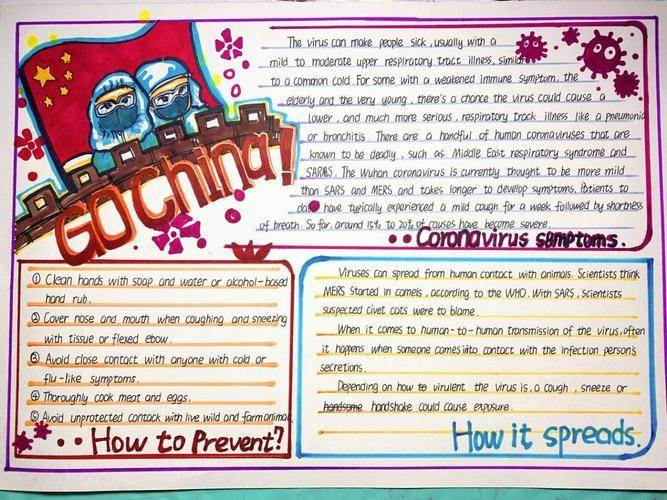 GO China!
The virus can make people sick, usually with a
mild to moderate upper respiratory tract illness, simila
to a common cold. For some with a weakened immune symptom. the
elderly and the very young, there's a chance the virus could cause a
lower, and much more serious, respiratory track illness like a pneumonia
or bronchitis. There are a handful of human coronaviruses that are
known to be deadly, such as Middle East respiratory syndrome and
SARS. The Wuhan coronavirus is currently thought to be more mild
than SARS and MERS and takes longer to develop symptoms. Patients to
da have typically experienced a mild cough for a week followed by shortness
of breath. So far, around 15% to 20% of causes have become severe.
Coronavirus symptoms.
① Clean hands with soap and water or alcohol-based
hand rub.
② Cover nose and mouth when coughing and sneezing
with tissue or flexed ebow.
③ Avoid close contact with anyone with cold or
flu-like symptoms.
④ Thoroughly cook meat and eggs.
⑤ Avoid unprotected contack with live wild and farm animal.
How to Prevent?
Viruses can spread from human contact with animals. Scientists think
MERS started in camels, according to the WHO. With SARS, scientists
suspected civet cats were to blame.
When it comes to human-to-human transmission of the virus, often
it happens when someone comes into contact with the infection person's
secretions.
Depending on how to virulent the virus is, a cough, sneeze or
handsome handshake could cause exposure.
How it spreads.